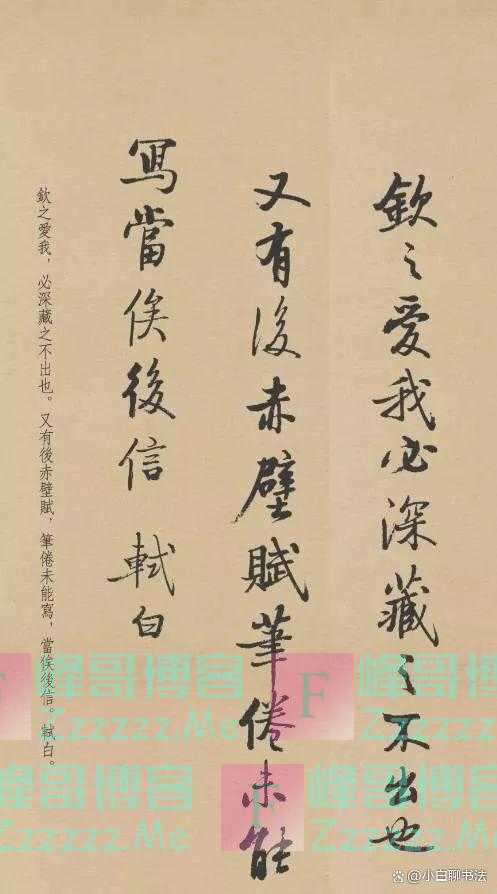 欽之愛我必深藏之不出也
又有後赤壁賦筆倦未能
寫當俟後信 軾白
欽之愛我，必深藏之不出也。又有後赤壁賦，筆倦未能寫，當俟後信。軾白。
F 峰哥博客
Zzzzzz.Me
F 峰哥博客
Zzzzzz.Me
峰哥博客
Zzzzzz.Me
F 峰哥博客
Zzzzzz.Me
@小白聊书法